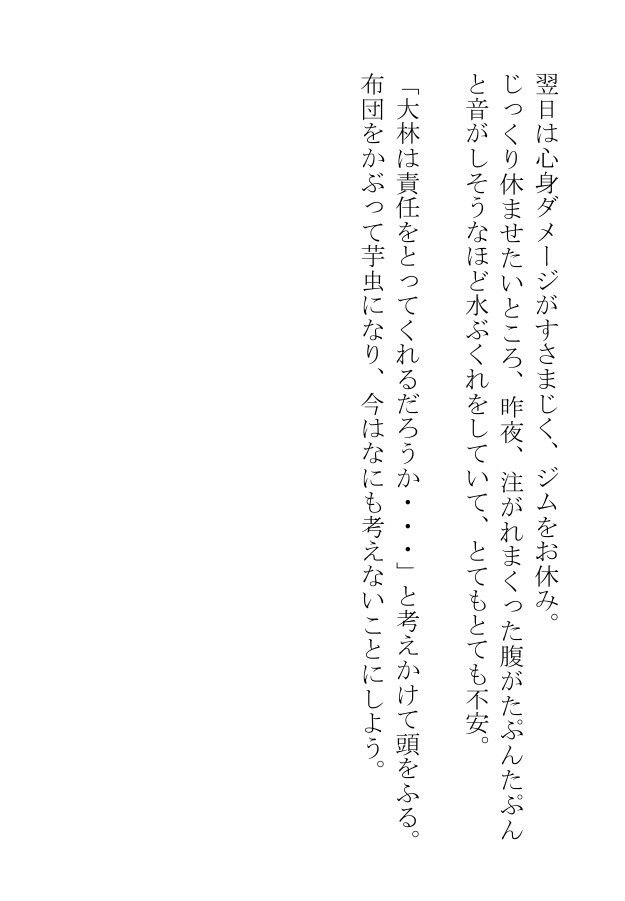 翌日は心身ダメージがすさまじく、ジムをお休み。
じっくり休ませたいところ、昨夜、注がれまくった腹がたぷんたぷん
と音がしそうなほど水ぶくれをしていて、とてもとても不安。
「大林は責任をとってくれるだろうか・・・」と考えかけて頭をふる。
布団をかぶって芋虫になり、今はなにも考えないことにしよう。